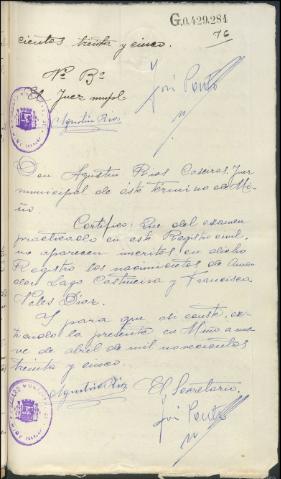 G.0.429.281
16
cientos treinta y cinco.
Vº Bº
El Juez mupl
José Panto
Agustín Rios
Don Agustin Rios Caseiras, Juez
municipal de éste término de Mi-
ño
Certifico: Que del examen
practicado en este Registro civil,
no aparecen inscritos en dicho
Registro los nacimientos de
Lago Castiñeira y Francisca
Diaz.
Y para que asi conste, ex-
pido la presente en Miño a nue-
ve de abril de mil novecientos
treinta y cinco.
Agustín Rios El Secretario
José Panto